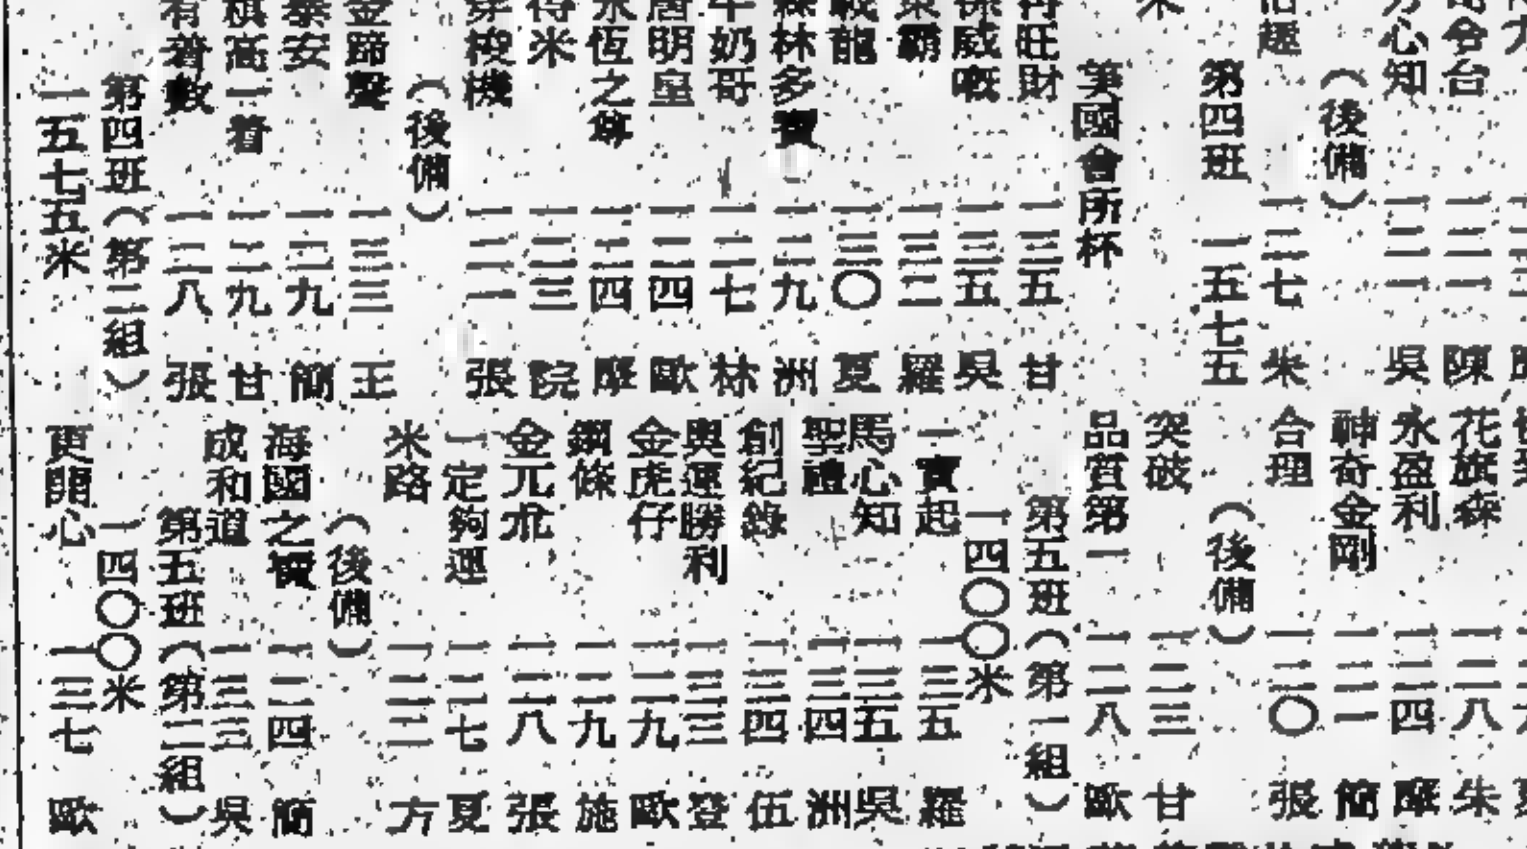 司令台 一二一 陳
方心知 一二一 吳
（後備）
怡趣 一二七 朱
第四班 一五七五
米
美國會所杯
旺財 一三五 甘
孫威 一三五 吳
東霸 一三二 羅
戰龍 一三〇 夏
森林多寶 一二九 洲
牛奶哥 一二七 林
唐明皇 一二四 歐
永恆之尊 一二四 摩
得米 一二三 院
穿梭機 一二一 張
（後備）
金蹄聲 一三三 王
泰安 一二九 簡
棋高一着 一二九 甘
有着數 一二八 張
第四班（第二組）
一五七五米
花旗森 一二八 朱
永盈利 一二四 摩
神奇金剛 一二一 簡
合理 一二〇 張
（後備）
突破 一二三 甘
品質第一 一二八 歐
第五班（第一組）
一四〇〇米
一寶起 一三五 羅
馬心知 一三五 吳
聖禮 一三四 洲
創紀錄 一三四 伍
奧運勝利 一三三 登
金虎仔 一二九 歐
鋼條 一二九 施
金兀朮 一二八 張
一定夠運 一二七 夏
米路 一二二 方
（後備）
海國之寶 一二四 簡
成和道 一三三 吳
第五班（第二組）
一四〇〇米
更開心 一三七 歐